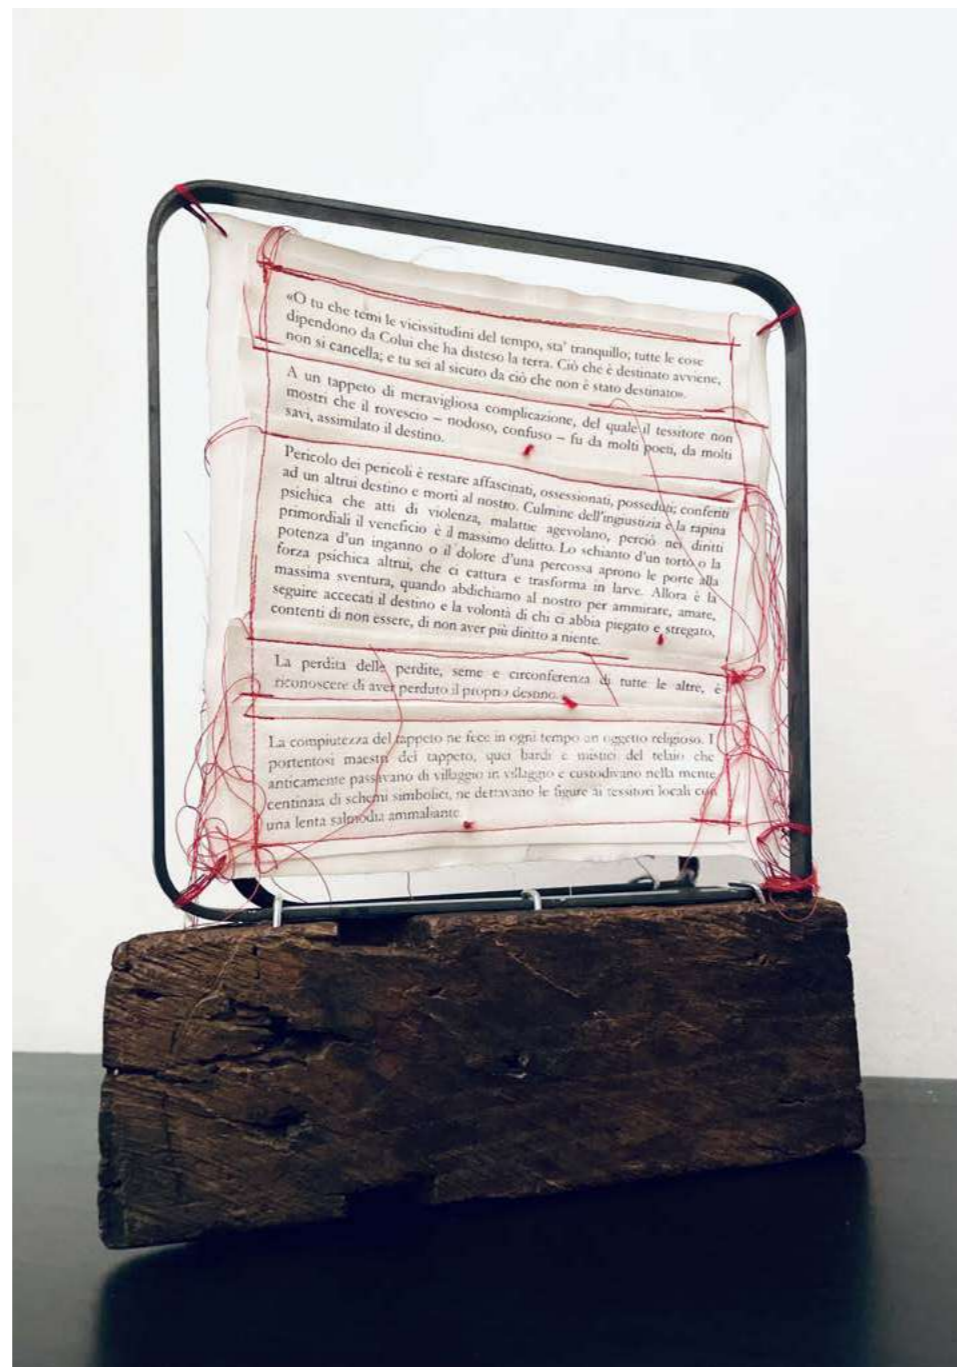 «O tu che temi le vicissitudini del tempo, sta’ tranquillo; tutte le cose
dipendono da Colui che ha disteso la terra. Ciò che è destinato avviene,
non si cancella; e tu sei al sicuro da ciò che non è stato destinato».
A un tappeto di meravigliosa complicazione, del quale il tessitore non
mostri che il rovescio – nodoso, confuso – fu da molti poeti, da molti
savi, assimilato il destino.
Pericolo dei pericoli è restare affascinati, ossessionati, posseduti; conferiti
ad un altrui destino e morti al nostro. Culmine dell’ingiustizia è la rapina
psichica che atti di violenza, malattie agevolano, perciò nei diritti
primordiali il veneficio è il massimo delitto. Lo schianto d’un torto o la
potenza d’un inganno o il dolore d’una percossa aprono le porte alla
forza psichica altrui, che ci cattura e trasforma in larve. Allora è la
massima sventura, quando abdichiamo al nostro per ammirare, amare,
seguire accecati il destino e la volontà di chi ci abbia piegato e stregato,
contenti di non essere, di non aver più diritto a niente.
La perdita delle perdite, seme e circonferenza di tutte le altre, è
riconoscere di aver perduto il proprio destino.
La compiutezza del tappeto ne fece in ogni tempo un oggetto religioso. I
portentosi maestri del tappeto, quei bardi e mistici del telaio che
anticamente passavano di villaggio in villaggio e custodivano nella mente
centinaia di schemi simbolici, ne dettavano le figure ai tessitori locali con
una lenta salmodia ammaliante.